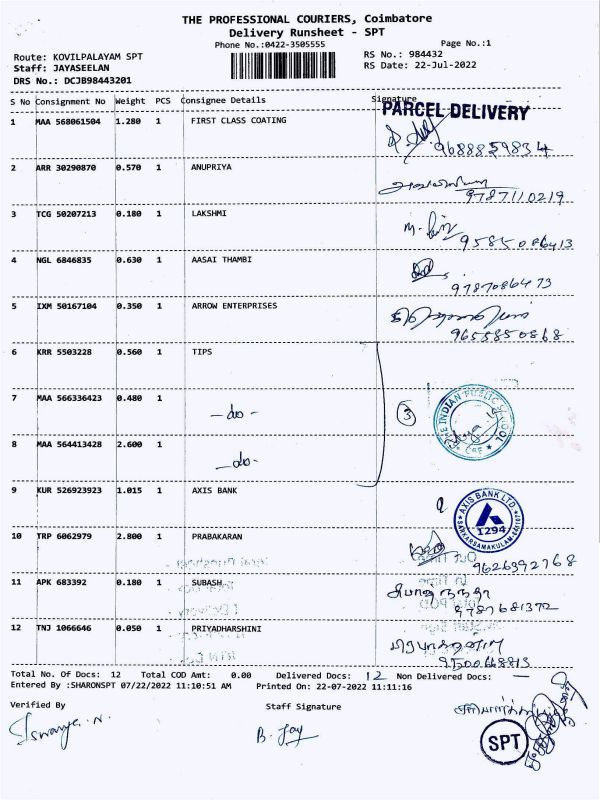 THE PROFESSIONAL COURIERS, Coimbatore
Delivery Runsheet - SPT
Phone No.:0422-3505555
Page No.:1
Route: KOVILPALAYAM SPT
RS No.: 984432
Staff: JAYASEELAN
RS Date: 22-Jul-2022
DRS No.: DCJB98443201
S No Consignment No Weight PCS Consignee Details Signature
PARCEL DELIVERY
1 MAA 568061504 1.280 1 FIRST CLASS COATING
9688859834
2 ARR 30290870 0.570 1 ANUPRIYA
9787110219
3 TCG 50207213 0.180 1 LAKSHMI
9585086413
4 NGL 6846835 0.630 1 AASAI THAMBI
9787086473
5 IXM 50167104 0.350 1 ARROW ENTERPRISES
9655850868
6 KRR 5503228 0.560 1 TIPS
7 MAA 566336423 0.480 1 -do-
3
THE INDIAN PUBLIC SCHOOL
CBE
8 MAA 564413428 2.600 1 -do-
9 KUR 526923923 1.015 1 AXIS BANK
AXIS BANK LTD.
1294
SARKARSAMAKULAM
10 TRP 6062979 2.800 1 PRABAKARAN
9626392768
11 APK 683392 0.180 1 SUBASH
9789681372
12 TNJ 1066646 0.050 1 PRIYADHARSHINI
9500668813
Total No. Of Docs: 12 Total COD Amt: 0.00 Delivered Docs: 12 Non Delivered Docs: —
Entered By :SHARONSPT 07/22/2022 11:10:51 AM Printed On: 22-07-2022 11:11:16
Verified By Staff Signature
Iswarya. N.
B. Jay
SPT